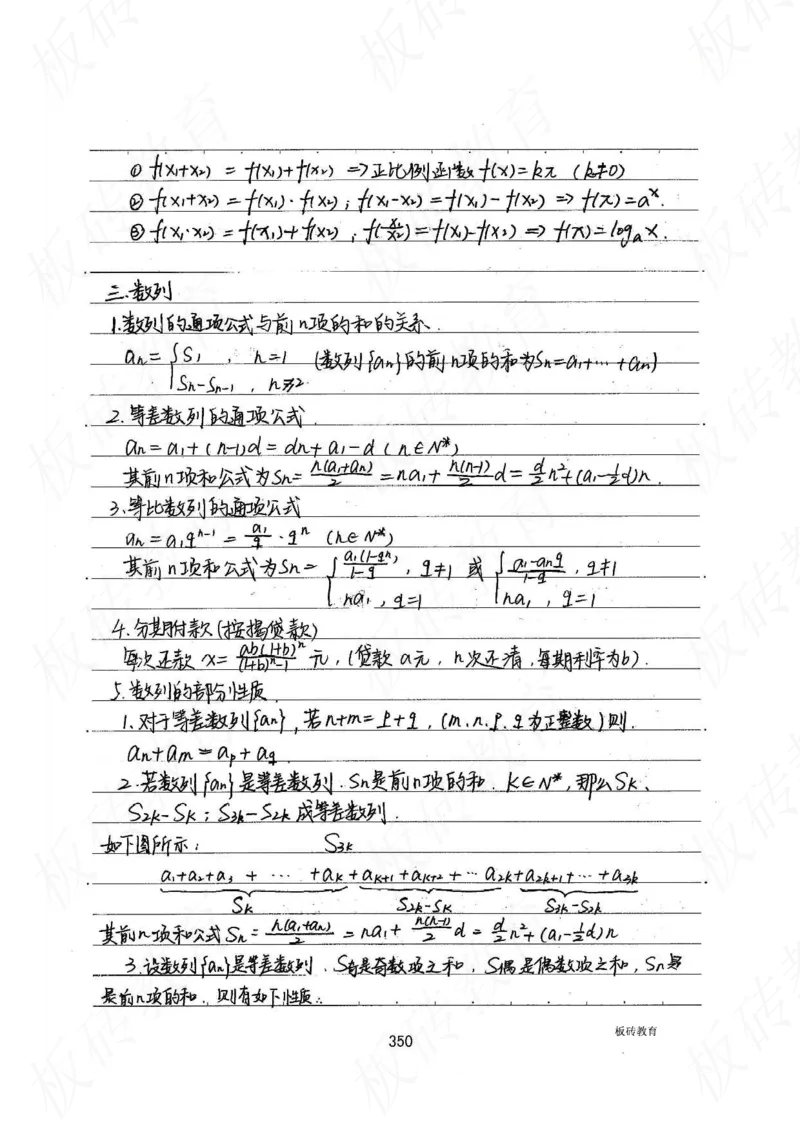 ① f(x₁+x₂) = f(x₁)+f(x₂) ⇒正比例函数 f(x)=kx (k≠0)
② f(x₁+x₂) = f(x₁)·f(x₂) ; f(x₁-x₂) = f(x₁)-f(x₂) ⇒ f(x)=aˣ.
③ f(x₁·x₂) = f(x₁)+f(x₂) , f(x₁/x₂) = f(x₁)-f(x₂) ⇒ f(x)=logₐx.
三.数列
1.数列的通项公式与前n项的和的关系.
aₙ = { S₁ , n=1 (数列{aₙ}的前n项的和为Sₙ=a₁+…+aₙ)
Sₙ-Sₙ₋₁ , n≥2.
2.等差数列的通项公式.
aₙ = a₁+(n-1)d = dn+a₁-d (n∈N*)
其前n项和公式为 Sₙ = n(a₁+aₙ)/2 = na₁+ n(n-1)/2 d = d/2 n²+(a₁-1/2 d)n.
3.等比数列的通项公式
aₙ = a₁qⁿ⁻¹ = a₁/q · qⁿ (n∈N*)
其前n项和公式为 Sₙ = { a₁(1-qⁿ)/1-q , q≠1 或 { a₁-aₙq/1-q , q≠1
na₁ , q=1 na₁ , q=1
4.分期附款(按揭贷款)
每次还款 x = ab(1+b)ⁿ/(1+b)ⁿ-1 元, (贷款a元, n次还清,每期利率为b).
5.数列的部分性质
1.对于等差数列{aₙ},若n+m=p+q, (m.n.p.q为正整数)则.
aₙ+aₘ = aₚ+a_q.
2.若数列{aₙ}是等差数列.Sₙ是前n项的和. K∈N*,那么Sₖ、
S₂ₖ-Sₖ;S₃ₖ-S₂ₖ成等差数列.
如下图所示: S₃ₖ
a₁+a₂+a₃ + … +aₖ+aₖ₊₁+aₖ₊₂+… a₂ₖ+a₂ₖ₊₁+…+a₃ₖ
Sₖ S₂ₖ-Sₖ S₃ₖ-S₂ₖ
其前n项和公式 Sₙ = n(a₁+aₙ)/2 = na₁+ n(n-1)/2 d = d/2 n²+(a₁-1/2 d)n
3.设数列{aₙ}是等差数列.S奇是奇数项之和,S偶是偶数项之和,Sₙ是
是前n项的和,则有如下性质:
板砖教育
350